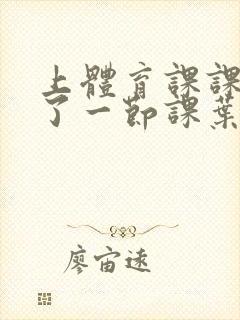 上體育課課
了一節課葉
廖宙遠